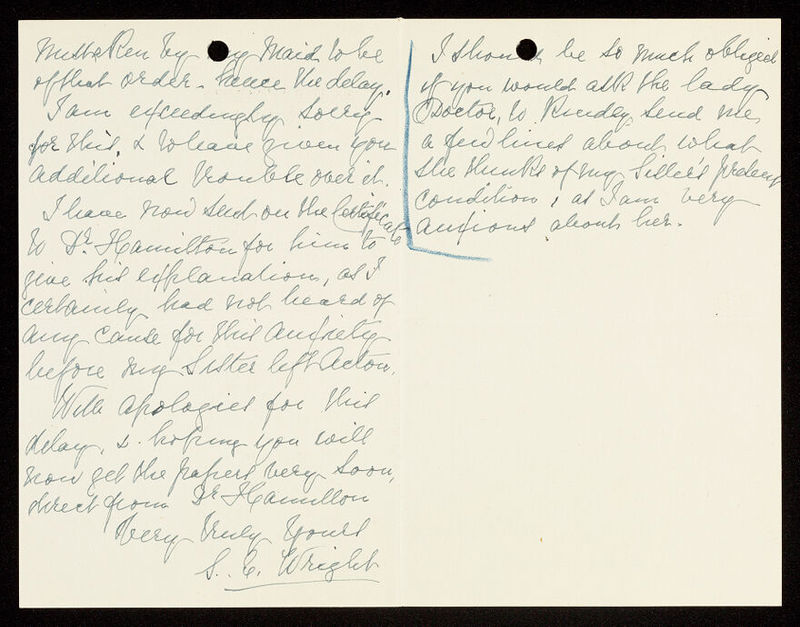 mistaken by my Maid to be
of that order - hence the delay.
I am exceedingly sorry
for this, & to have given you
additional trouble over it.
I have now sent on the Certificate
to Dr. Hamilton for him to
give his explanation, as I
certainly had not heard of
any cause for this anxiety
before my Sister left Acton.
With apologies for this
delay, & hoping you will
now get the papers very soon,
direct from Dr Hamilton
Very truly yours
S. E. Wright
I should be so much obliged
if you would ask the lady
Doctor, to kindly send me
a few lines about what
she thinks of my Sister's present
condition, as I am very
anxious about her.